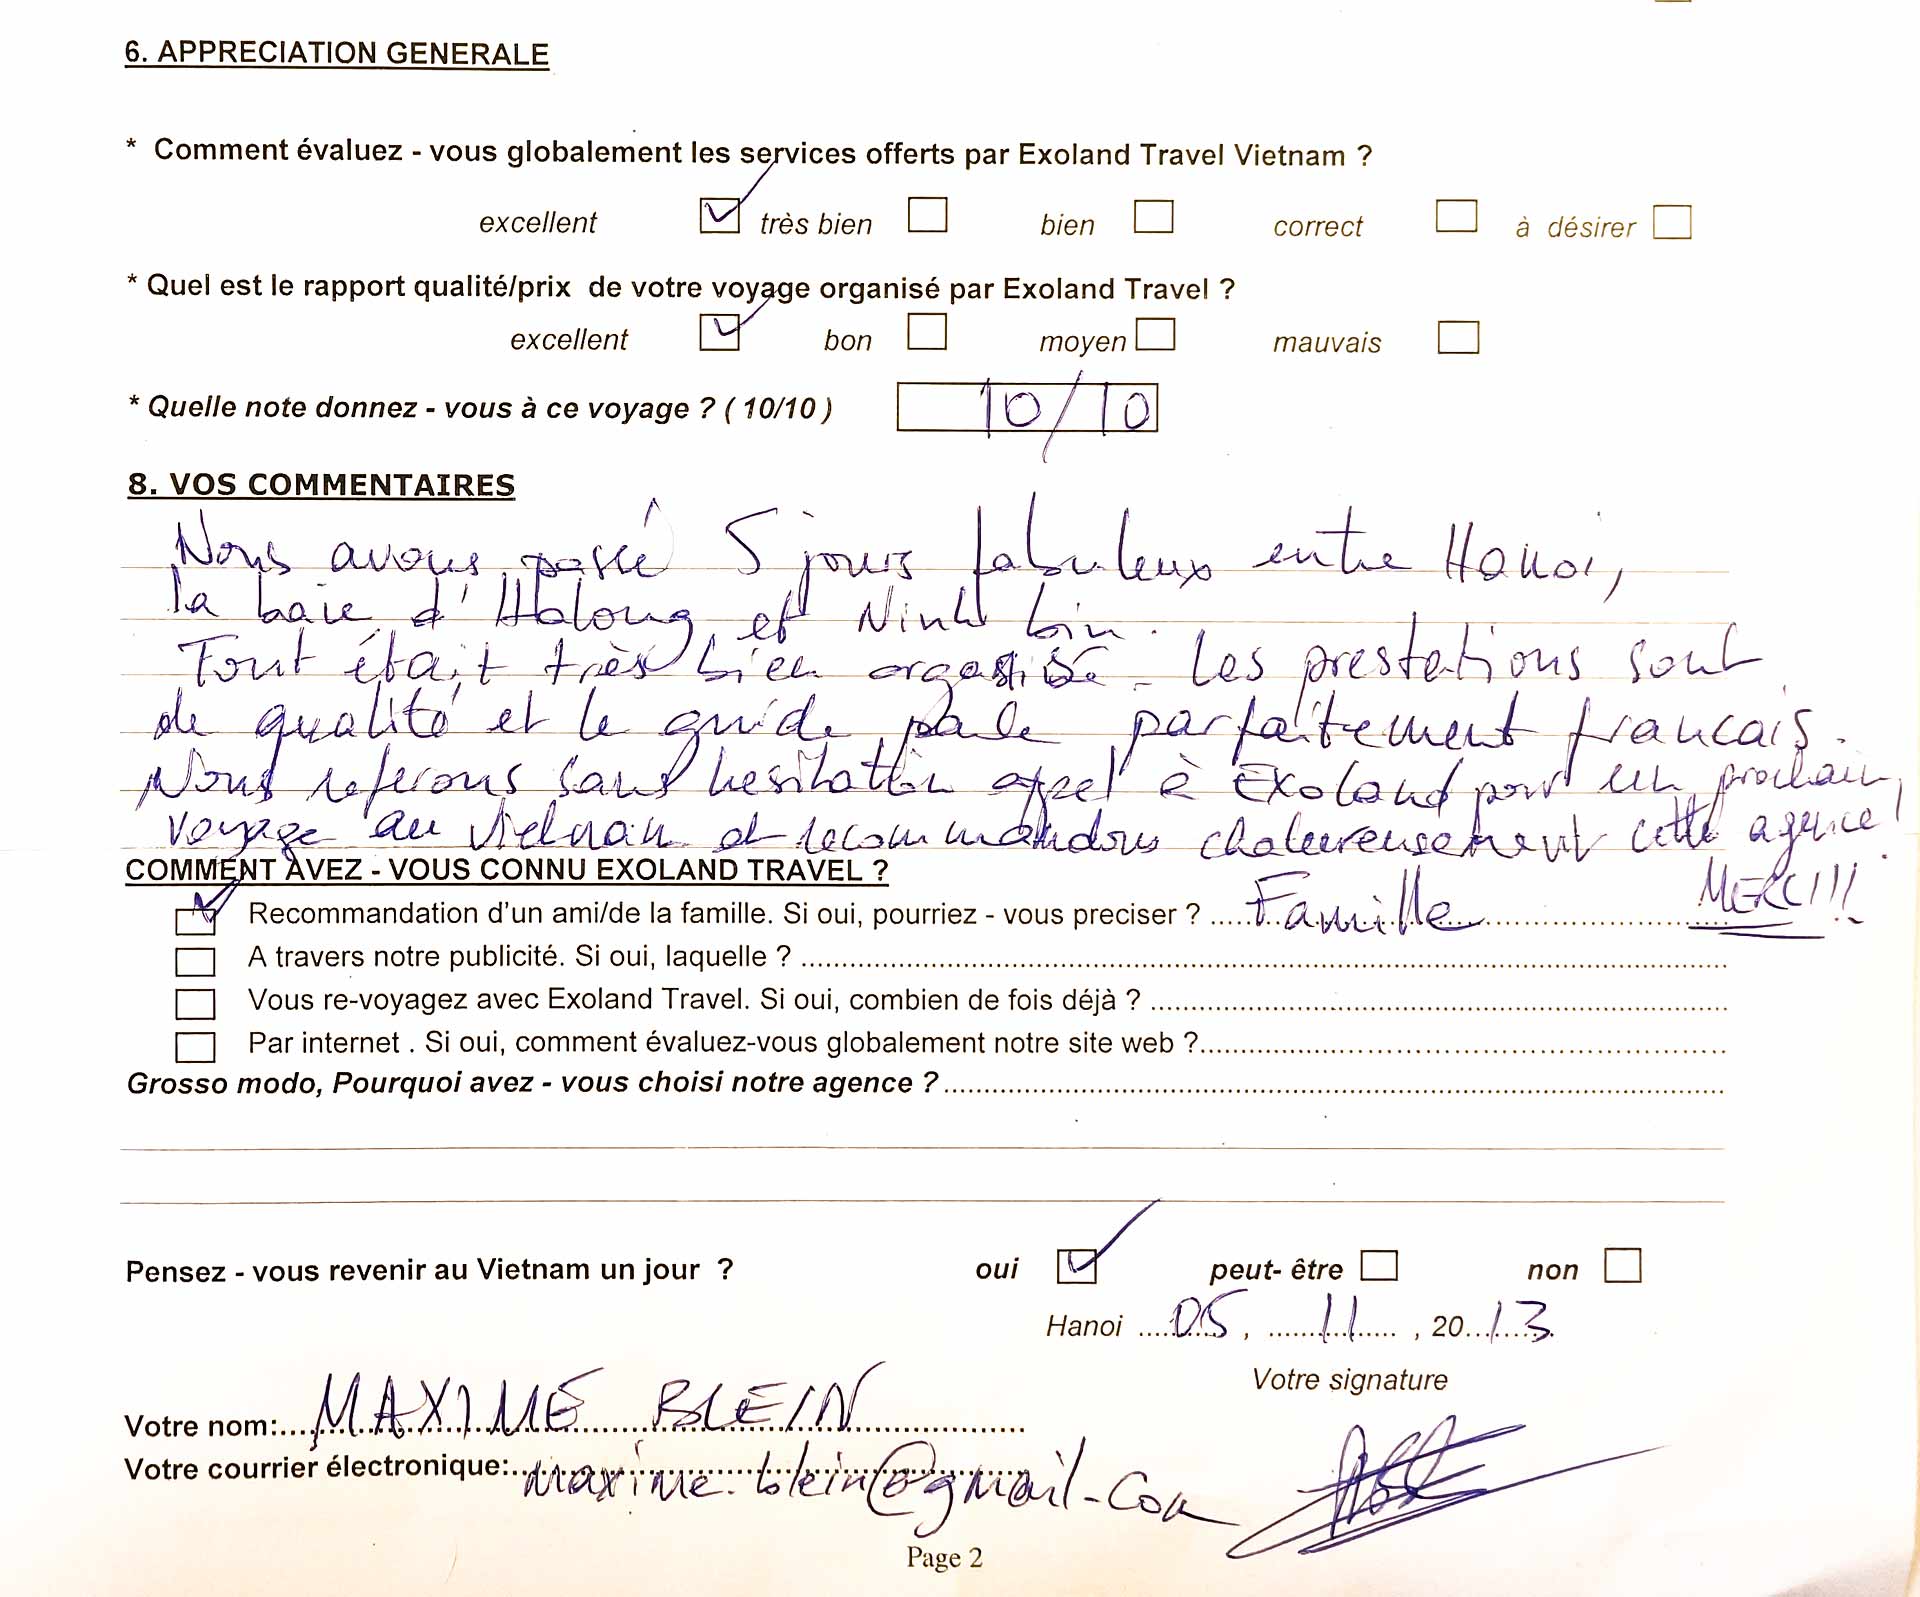 6. APPRECIATION GENERALE
* Comment évaluez - vous globalement les services offerts par Exoland Travel Vietnam ?
excellent très bien bien correct à désirer
* Quel est le rapport qualité/prix de votre voyage organisé par Exoland Travel ?
excellent bon moyen mauvais
* Quelle note donnez - vous à ce voyage ? ( 10/10 ) 10/10
8. VOS COMMENTAIRES
Nous avons passé 5 jours fabuleux entre Hanoi,
la baie d'Halong et Ninh bin.
Tout était très bien organisé. Les prestations sont
de qualité et le guide parle parfaitement francais.
Nous referons sans hesitation appel à Exoland pour un prochain
voyage au Vietnam et recommandons chaleureusement cette agence !
COMMENT AVEZ - VOUS CONNU EXOLAND TRAVEL ?
MERCI!!!
Recommandation d'un ami/de la famille. Si oui, pourriez - vous preciser ? ..... Famille
A travers notre publicité. Si oui, laquelle ? .....
Vous re-voyagez avec Exoland Travel. Si oui, combien de fois déjà ? .....
Par internet . Si oui, comment évaluez-vous globalement notre site web ?.....
Grosso modo, Pourquoi avez - vous choisi notre agence ? .....
Pensez - vous revenir au Vietnam un jour ? oui peut- être non
Hanoi 05, 11, 2013
Votre signature
Votre nom: MAXIME BLEIN
Votre courrier électronique: maxime.blein@gmail.com
Page 2